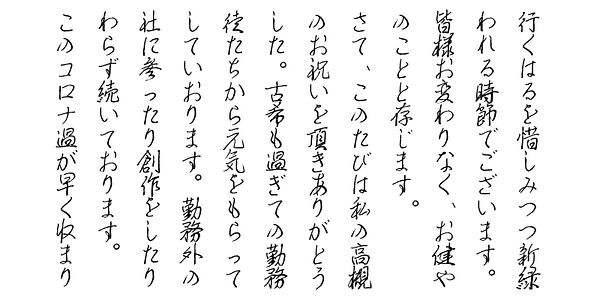 行くはるを惜しみつつ新緑
われる時節でございます。
皆様お変わりなく、お健や
のことと存じます。
さて、このたびは私の高槻
のお祝いを頂きありがとう
した。古希も過ぎての勤務
徒たちから元気をもらって
しております。勤務外の
社に参ったり創作をしたり
わらず続いております。
このコロナ過が早く収まり